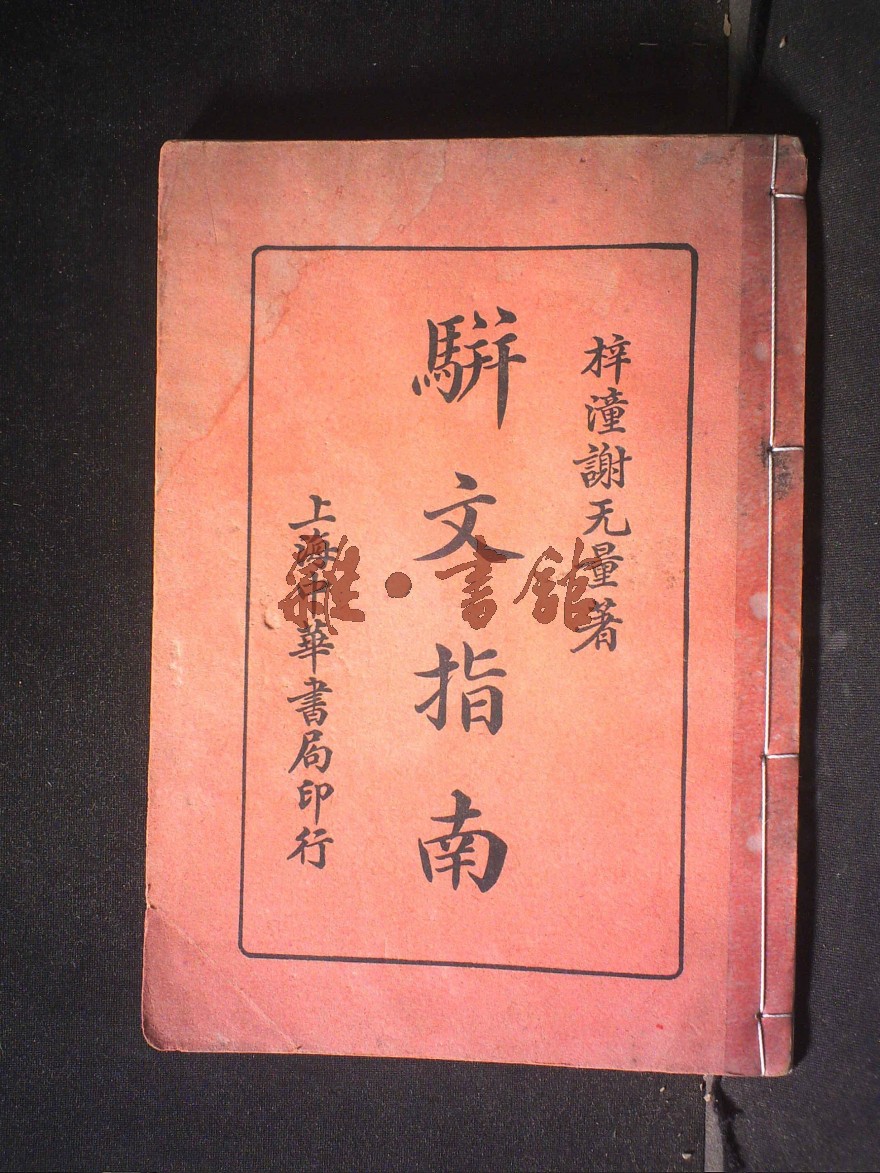 梓潼謝无量著
駢文指南
上海中華書局印行
雜·書館